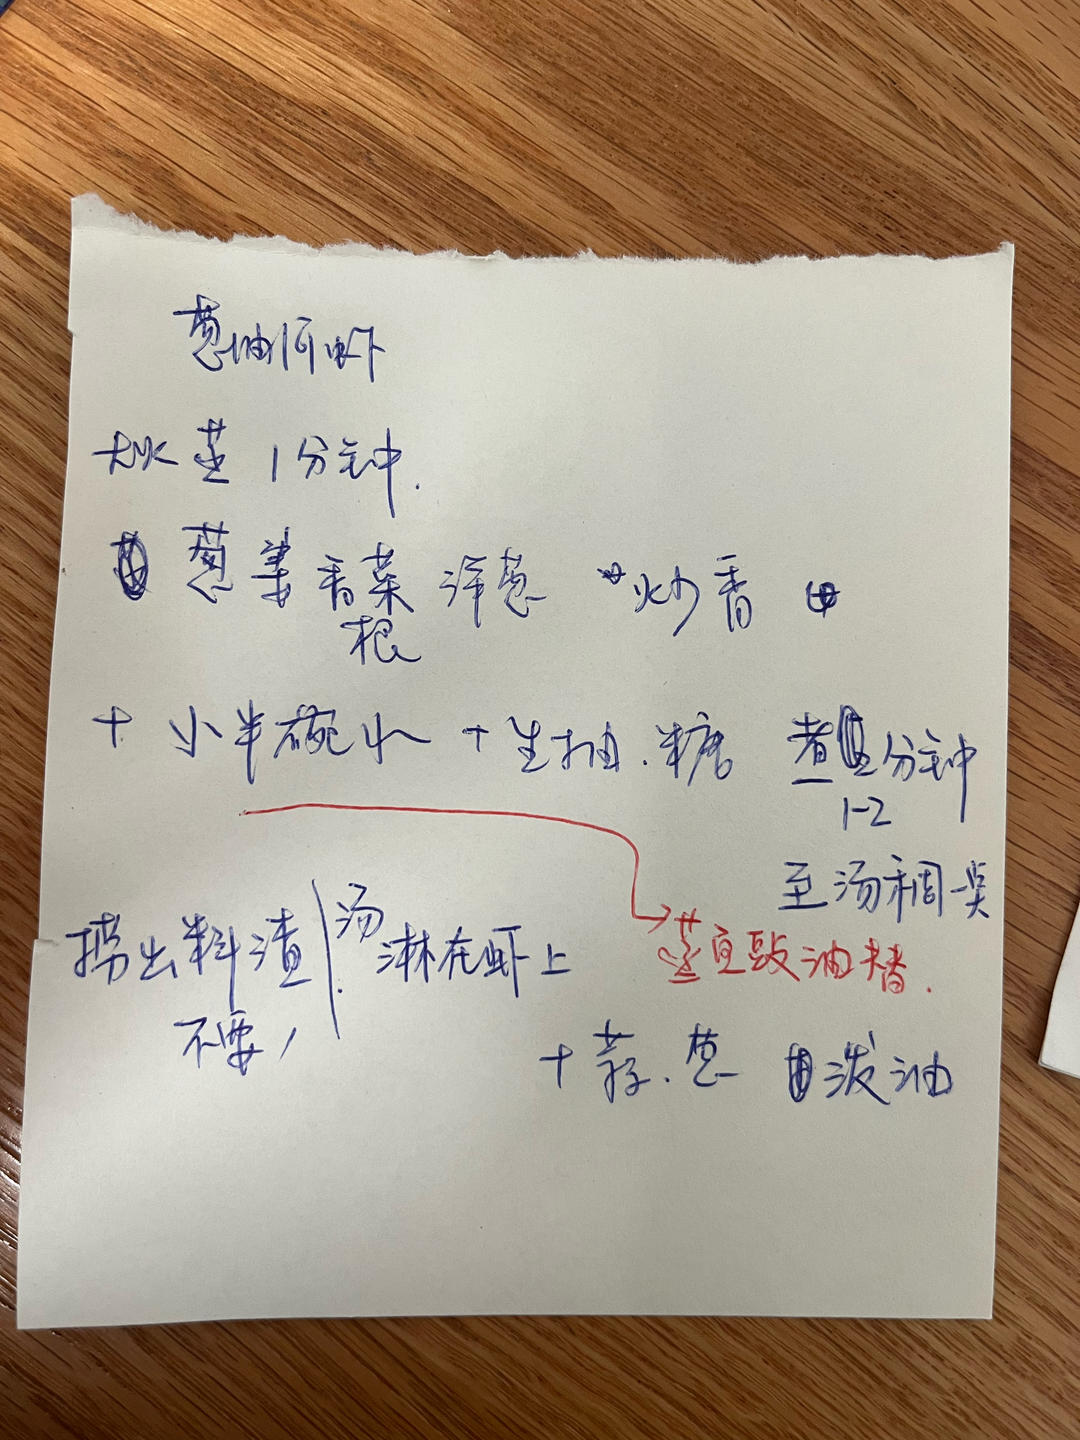 葱油河虾
大火蒸1分钟.
葱 姜 香菜 洋葱 炒香
根
+ 小半碗水 + 生抽.糖 煮 分钟
1-2
至汤稠一点
捞出料渣 汤淋在虾上
蒸豆豉油替.
不要!
+ 蒜.葱 泼油